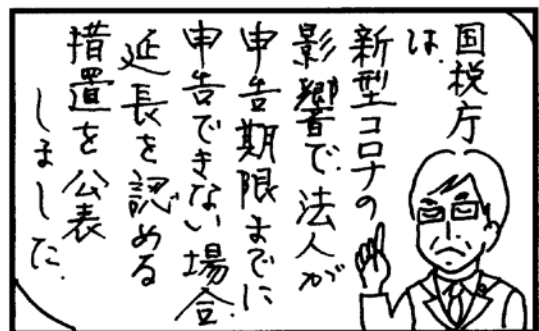 国税庁
は、
新型コロナの
影響で、法人が
申告期限までに
申告できない場合、
延長を認める
措置を公表
しました。